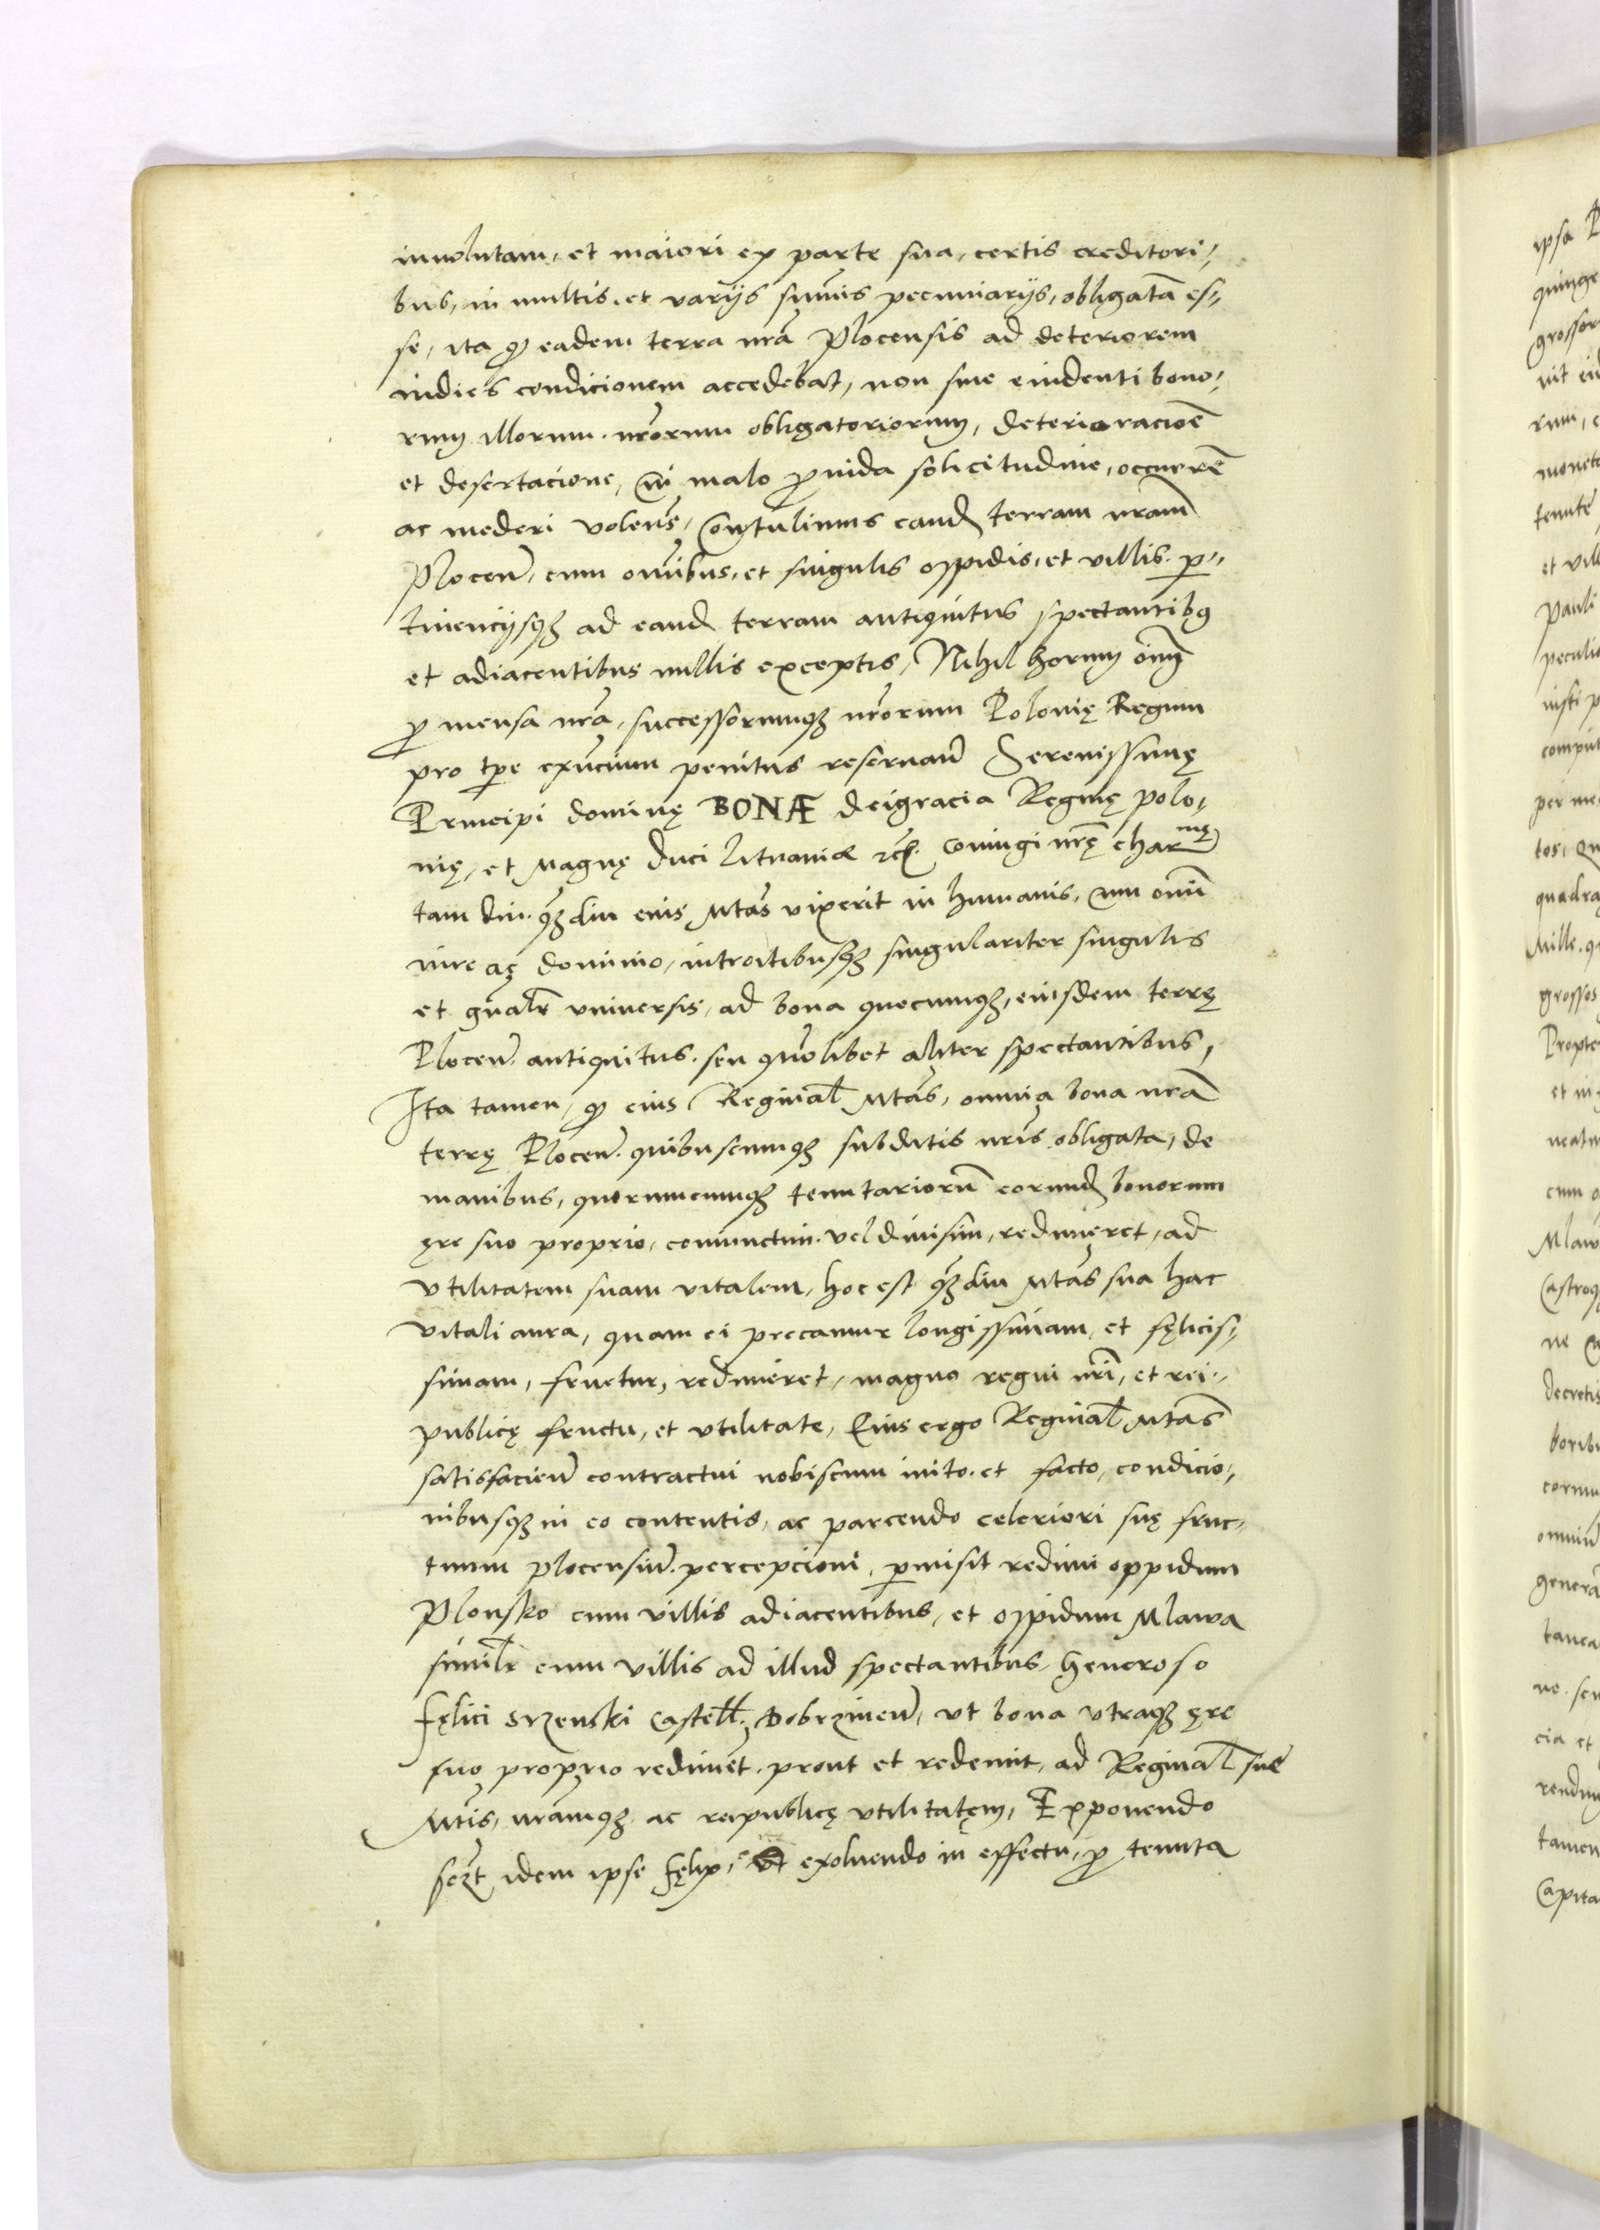 inuolutam, et maiori ex parte sua, certis creditori-
bus, in multis, et varijs sum̃is pecuniarijs, obligatã es-
se, ita qͦ eadem terra nrã Plocensis ad deteriorem
indies condicionem accedebat, non sine euidenti bono-
rum illorum nrõrum obligatoriorum, deterioracioẽ
et desertacione, cui malo ꝓuida solicitudine, occurrẽ
ac mederi volens, Contulimus eandẽ terram nram̃
Plocen̄, cum omñibus, et singulis oppidis, et villis, ꝑ-
tinencijsqȝ ad eandẽ terram antiquitus spectantibꝯ
et adiacentibus nullis exceptis, Nihil horum om̃
ꝓ mensa nrã, successorumqȝ nrõrum Polonię Regum
pro tp̃e exn̄cium penitus reseruan̄ Serenissimę
Principi dominę BONÆ deigracia Reginę polo-
nię, et Magnę Duci Lituaniæ ꝛc̃. coniugi nrę̃ charᵐᵉ
tam diu, qȝ̃diu eius Mtas̃ vixerit in humanis, cum omñi
iure ac dominio, introitibusqȝ singulariter singulis
et gñalr̃ vniuersis, ad bona quecumqȝ, eiusdem terrę
Plocen̄ antiquitus, seu quõlibet aliter spectantibus,
Ita tamen, qͦ eius Reginal̃ Mtas̃, omnia bona nrã
terrę Plocen̄ quibuscumqȝ subditis nrĩs obligata, de
manibus, quorumcumqȝ tenutariorũ eorundẽ bonorum
ęre suo proprio, coniunctim vel diuisim, redimeret, ad
vtilitatem suam vitalem, hoc est qȝ̃diu Mtas̃ sua hac
vitali aura, quam ei precamur longissimam, et fęlicis-
simam, fruetur, redimeret, magno regni nrĩ, et rei-
publicę fructu, et vtilitate, Eius ergo Reginal̃ Mtas̃
satisfacien̄ contractui nobiscum inito, et facto, condicio-
nibusqȝ in eo contentis, ac parcendo celeriori suę fruc-
tuum plocensiũ percepcioni, ꝑmisit redimi oppidum
Plonsko cum villis adiacentibus, et oppidum Mlawa
similr̃ cum villis ad illud spectantibus, Generoso
Fęlici Srzenski Castell̃. Dobrzinen̄, vt bona vtraqȝ ęre
suo proprio redimẽt, prout et redemit, ad Reginal̃ sue
Mtis̃, nram̃qȝ, ac reipublicę vtilitatem, Exponendo
idem ipse Fęlix, et exoluendo in effectu, ꝓ tenuta